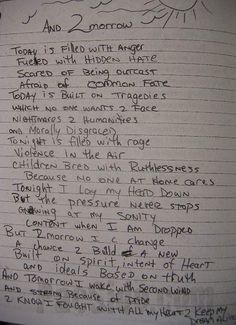 AND 2morrow
Today is Filled with Anger
Fueled with Hidden Hate
Scared of Being outcast
Afraid of common Fate
Today is Built on Tragedies
which no one wants 2 Face
Nightmares 2 Humanities
and Morally Disgraced
Tonight is filled with rage
Violence in the Air
Children Bred with Ruthlessness
Because no one at Home cares
Tonight I Lay my Head Down
But the pressure Never stops
Gnawing at my Sonity
content when I am Dropped
But 2morrow I c change
A chance 2 Build A new
Built on spirit, intent of Heart
and ideals Based on truth
And Tomorrow I wake with Second wind
and strong Because of pride
2 know I Fought with all my Heart 2 keep my
Dream Alive